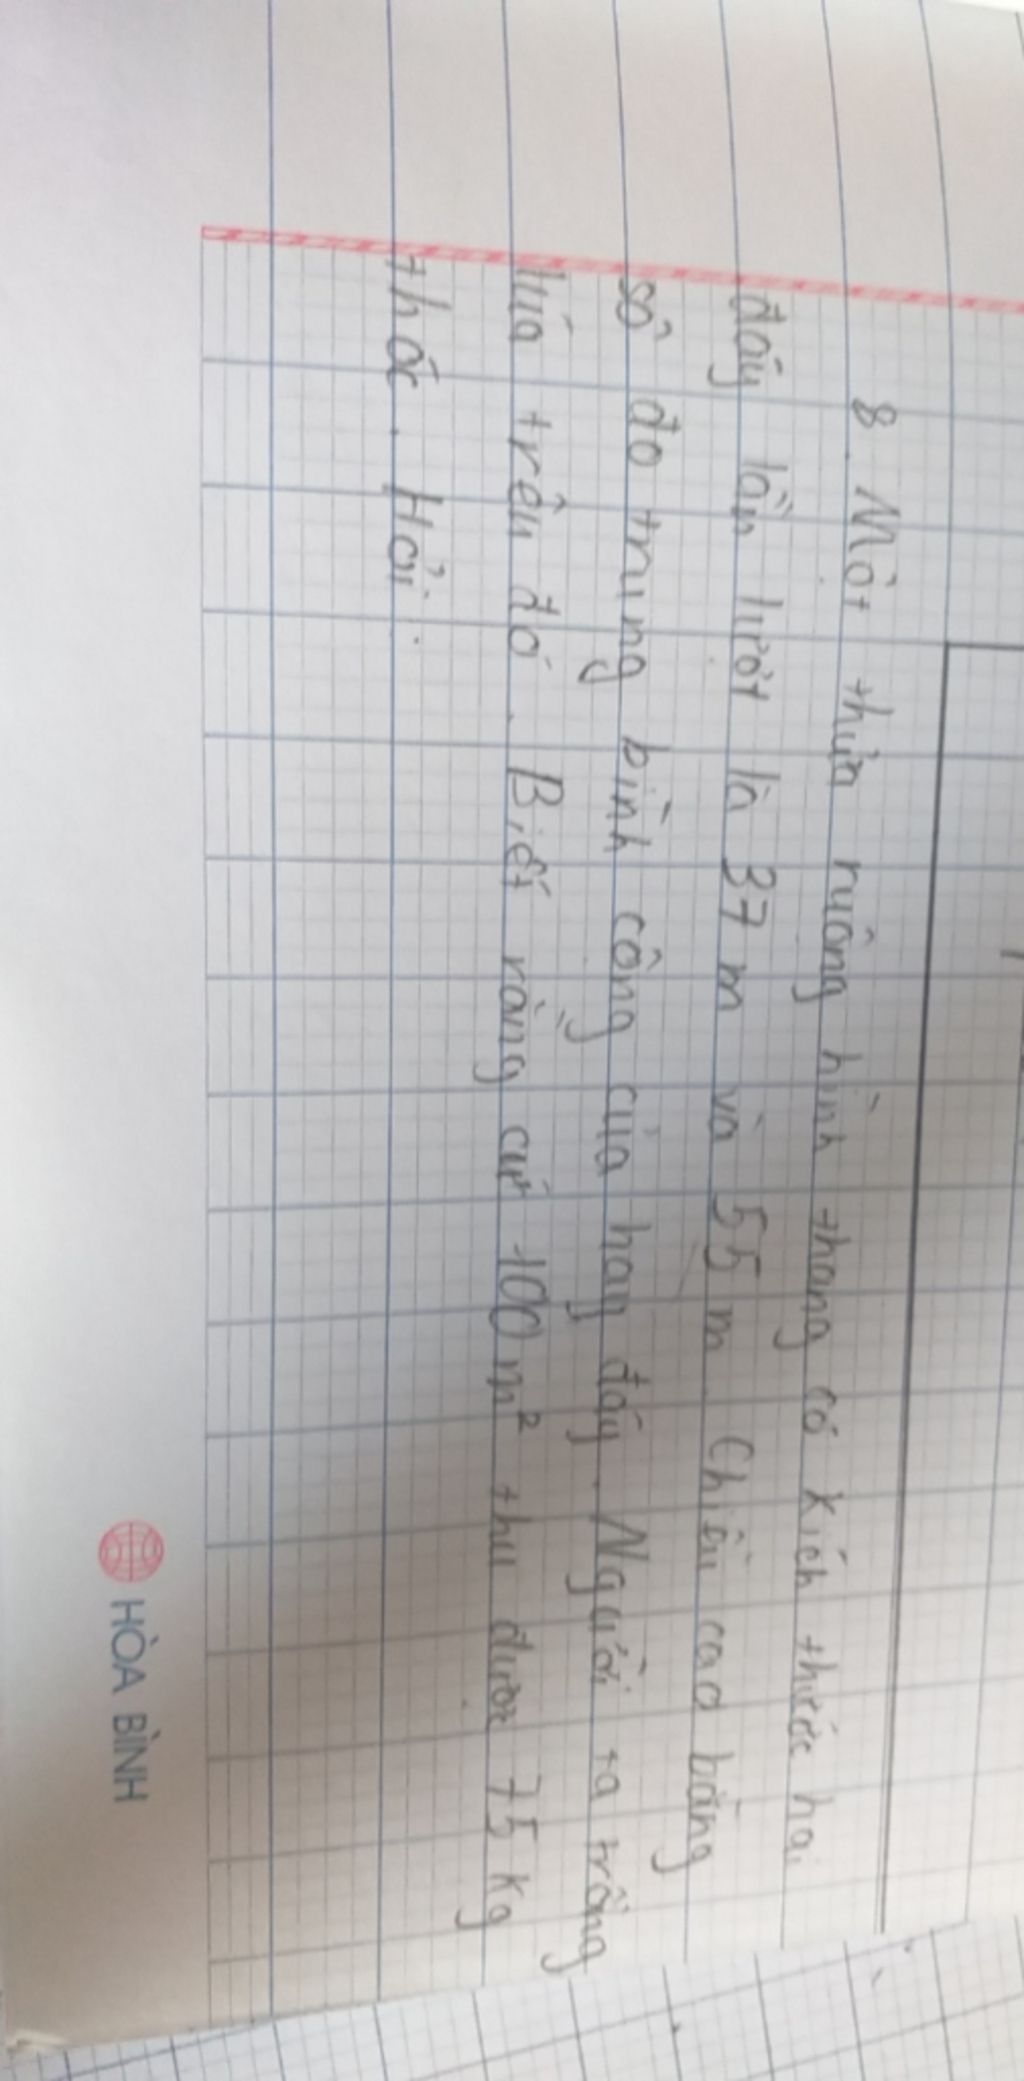 8. Một thửa ruộng hình thang có kích thước hai
đáy lần lượt là 37 m và 55 m. Chiều cao bằng
số đo trung bình cộng của hay đáy. Người ta trồng
lúa trên đó. Biết rằng cứt 100 m² thu được 75 kg
thóc. Hỏi:
HÒA BÌNH